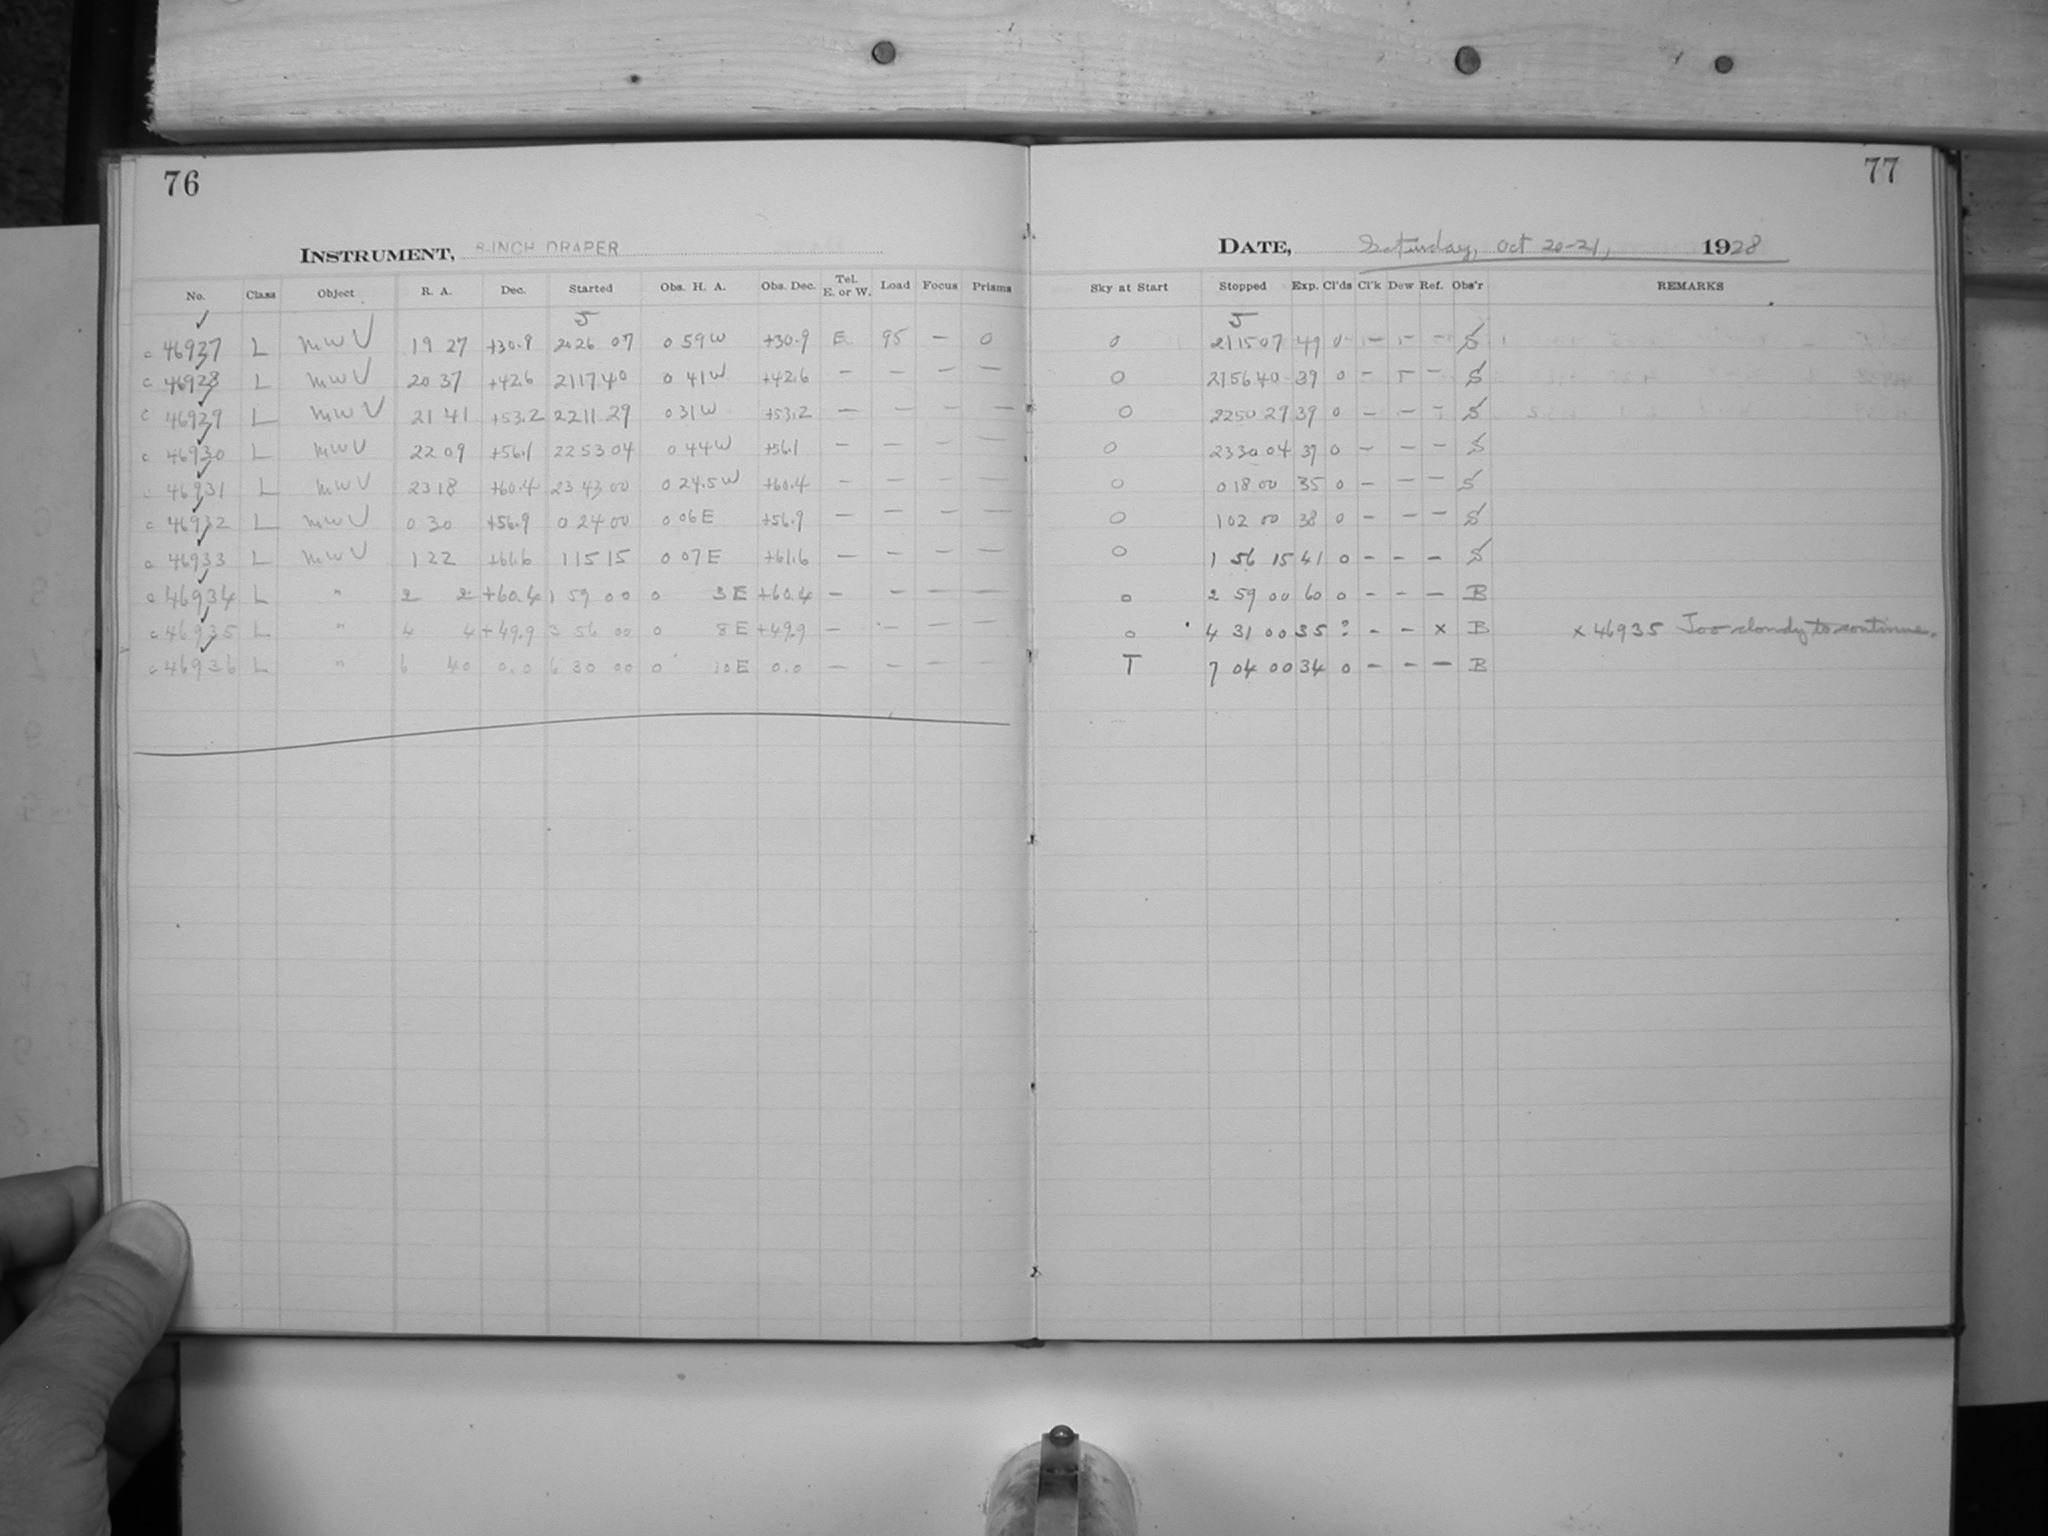 76
77
INSTRUMENT, 8-INCH DRAPER
DATE, Saturday, Oct 20-21, 1928
No. Class Object R. A. Dec. Started Obs. H. A. Obs. Dec. Tel. E. or W. Load Focus Prisms Sky at Start Stopped Exp. Cl'ds Cl'k Dew Ref. Obs'r REMARKS
c 46927 L MWV 19 27 +30.9 20 26 07 0 59 W +30.9 E 95 — 0 0 21 15 07 49 0 - - - S
c 46928 L MWV 20 37 +42.6 21 17 40 0 41 W +42.6 — — — — 0 21 56 40 39 0 - - - S
c 46929 L MWV 21 41 +53.2 22 11 29 0 31 W +53.2 — — — — 0 22 50 29 39 0 - - - S
c 46930 L MWV 22 09 +56.1 22 53 04 0 44 W +56.1 — — — — 0 23 30 04 37 0 - - - S
c 46931 L MWV 23 18 +60.4 23 43 00 0 24.5 W +60.4 — — — — 0 0 18 00 35 0 - - - S
c 46932 L MWV 0 30 +56.9 0 24 00 0 06 E +56.9 — — — — 0 1 02 00 38 0 - - - S
c 46933 L MWV 1 22 +61.6 1 15 15 0 07 E +61.6 — — — — 0 1 56 15 41 0 - - - S
c 46934 L " 2 2 +60.4 1 59 00 0 3 E +60.4 — — — — 0 2 59 00 60 0 - - - B
c 46935 L " 4 4 +49.9 3 56 00 0 8 E +49.9 — — — — 0 4 31 00 35 ? - - x B x 46935 Too cloudy to continue.
c 46936 L " 6 40 0.0 6 30 00 0 10 E 0.0 — — — — T 7 04 00 34 0 - - - B